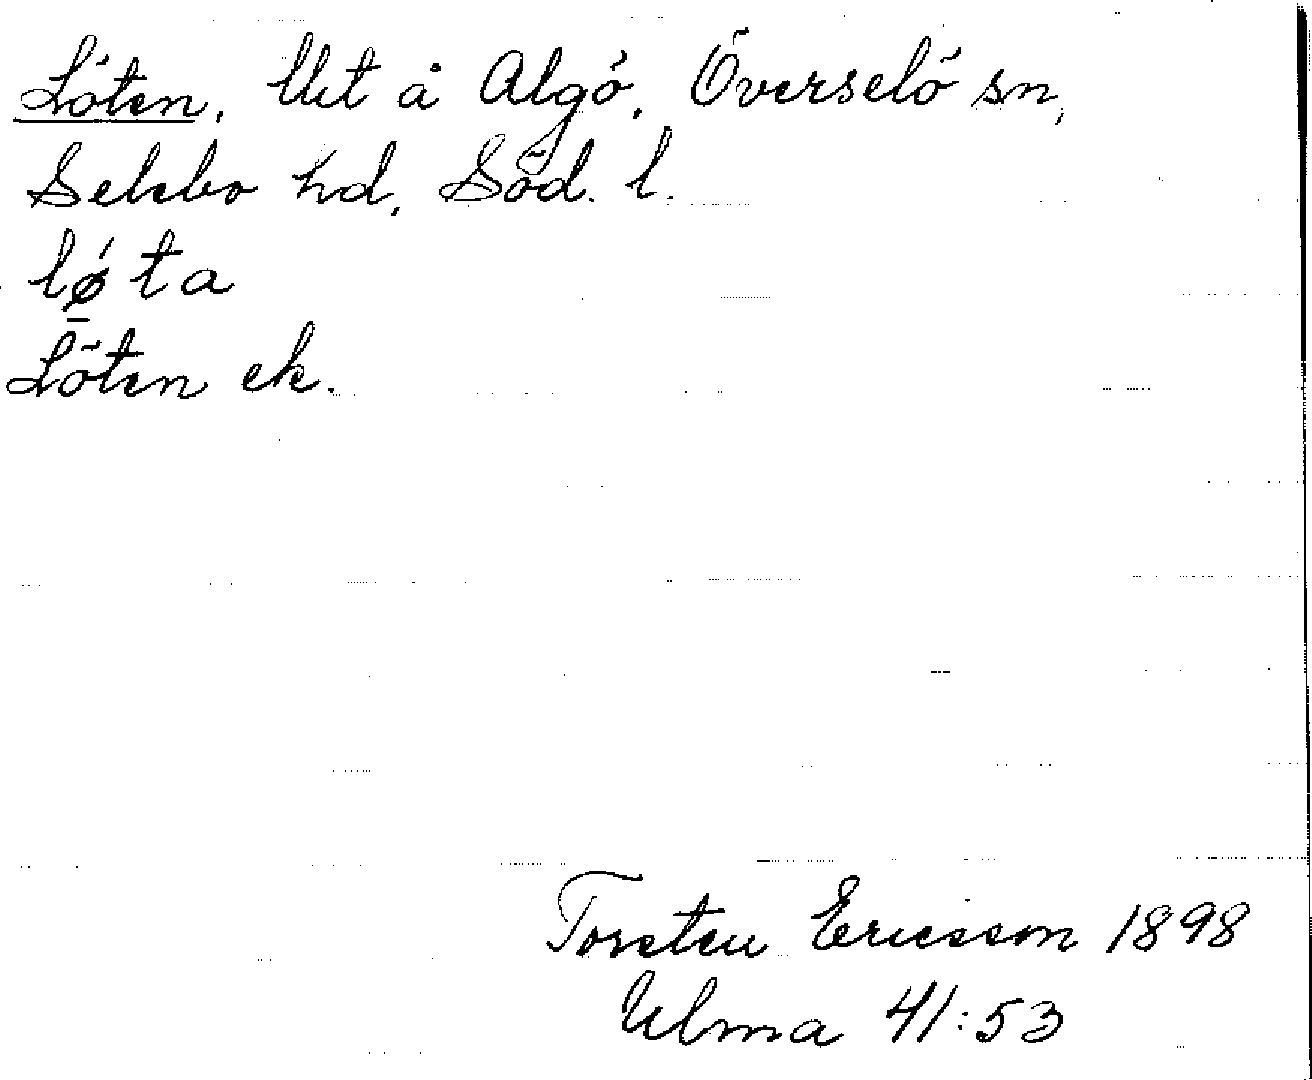 Löten, Utt å Algö, Överselö sn,
Selebo hd, Söd. l.
lǿta
Löten ek.
Torsten Ericsson 1898
Ulma 41:53